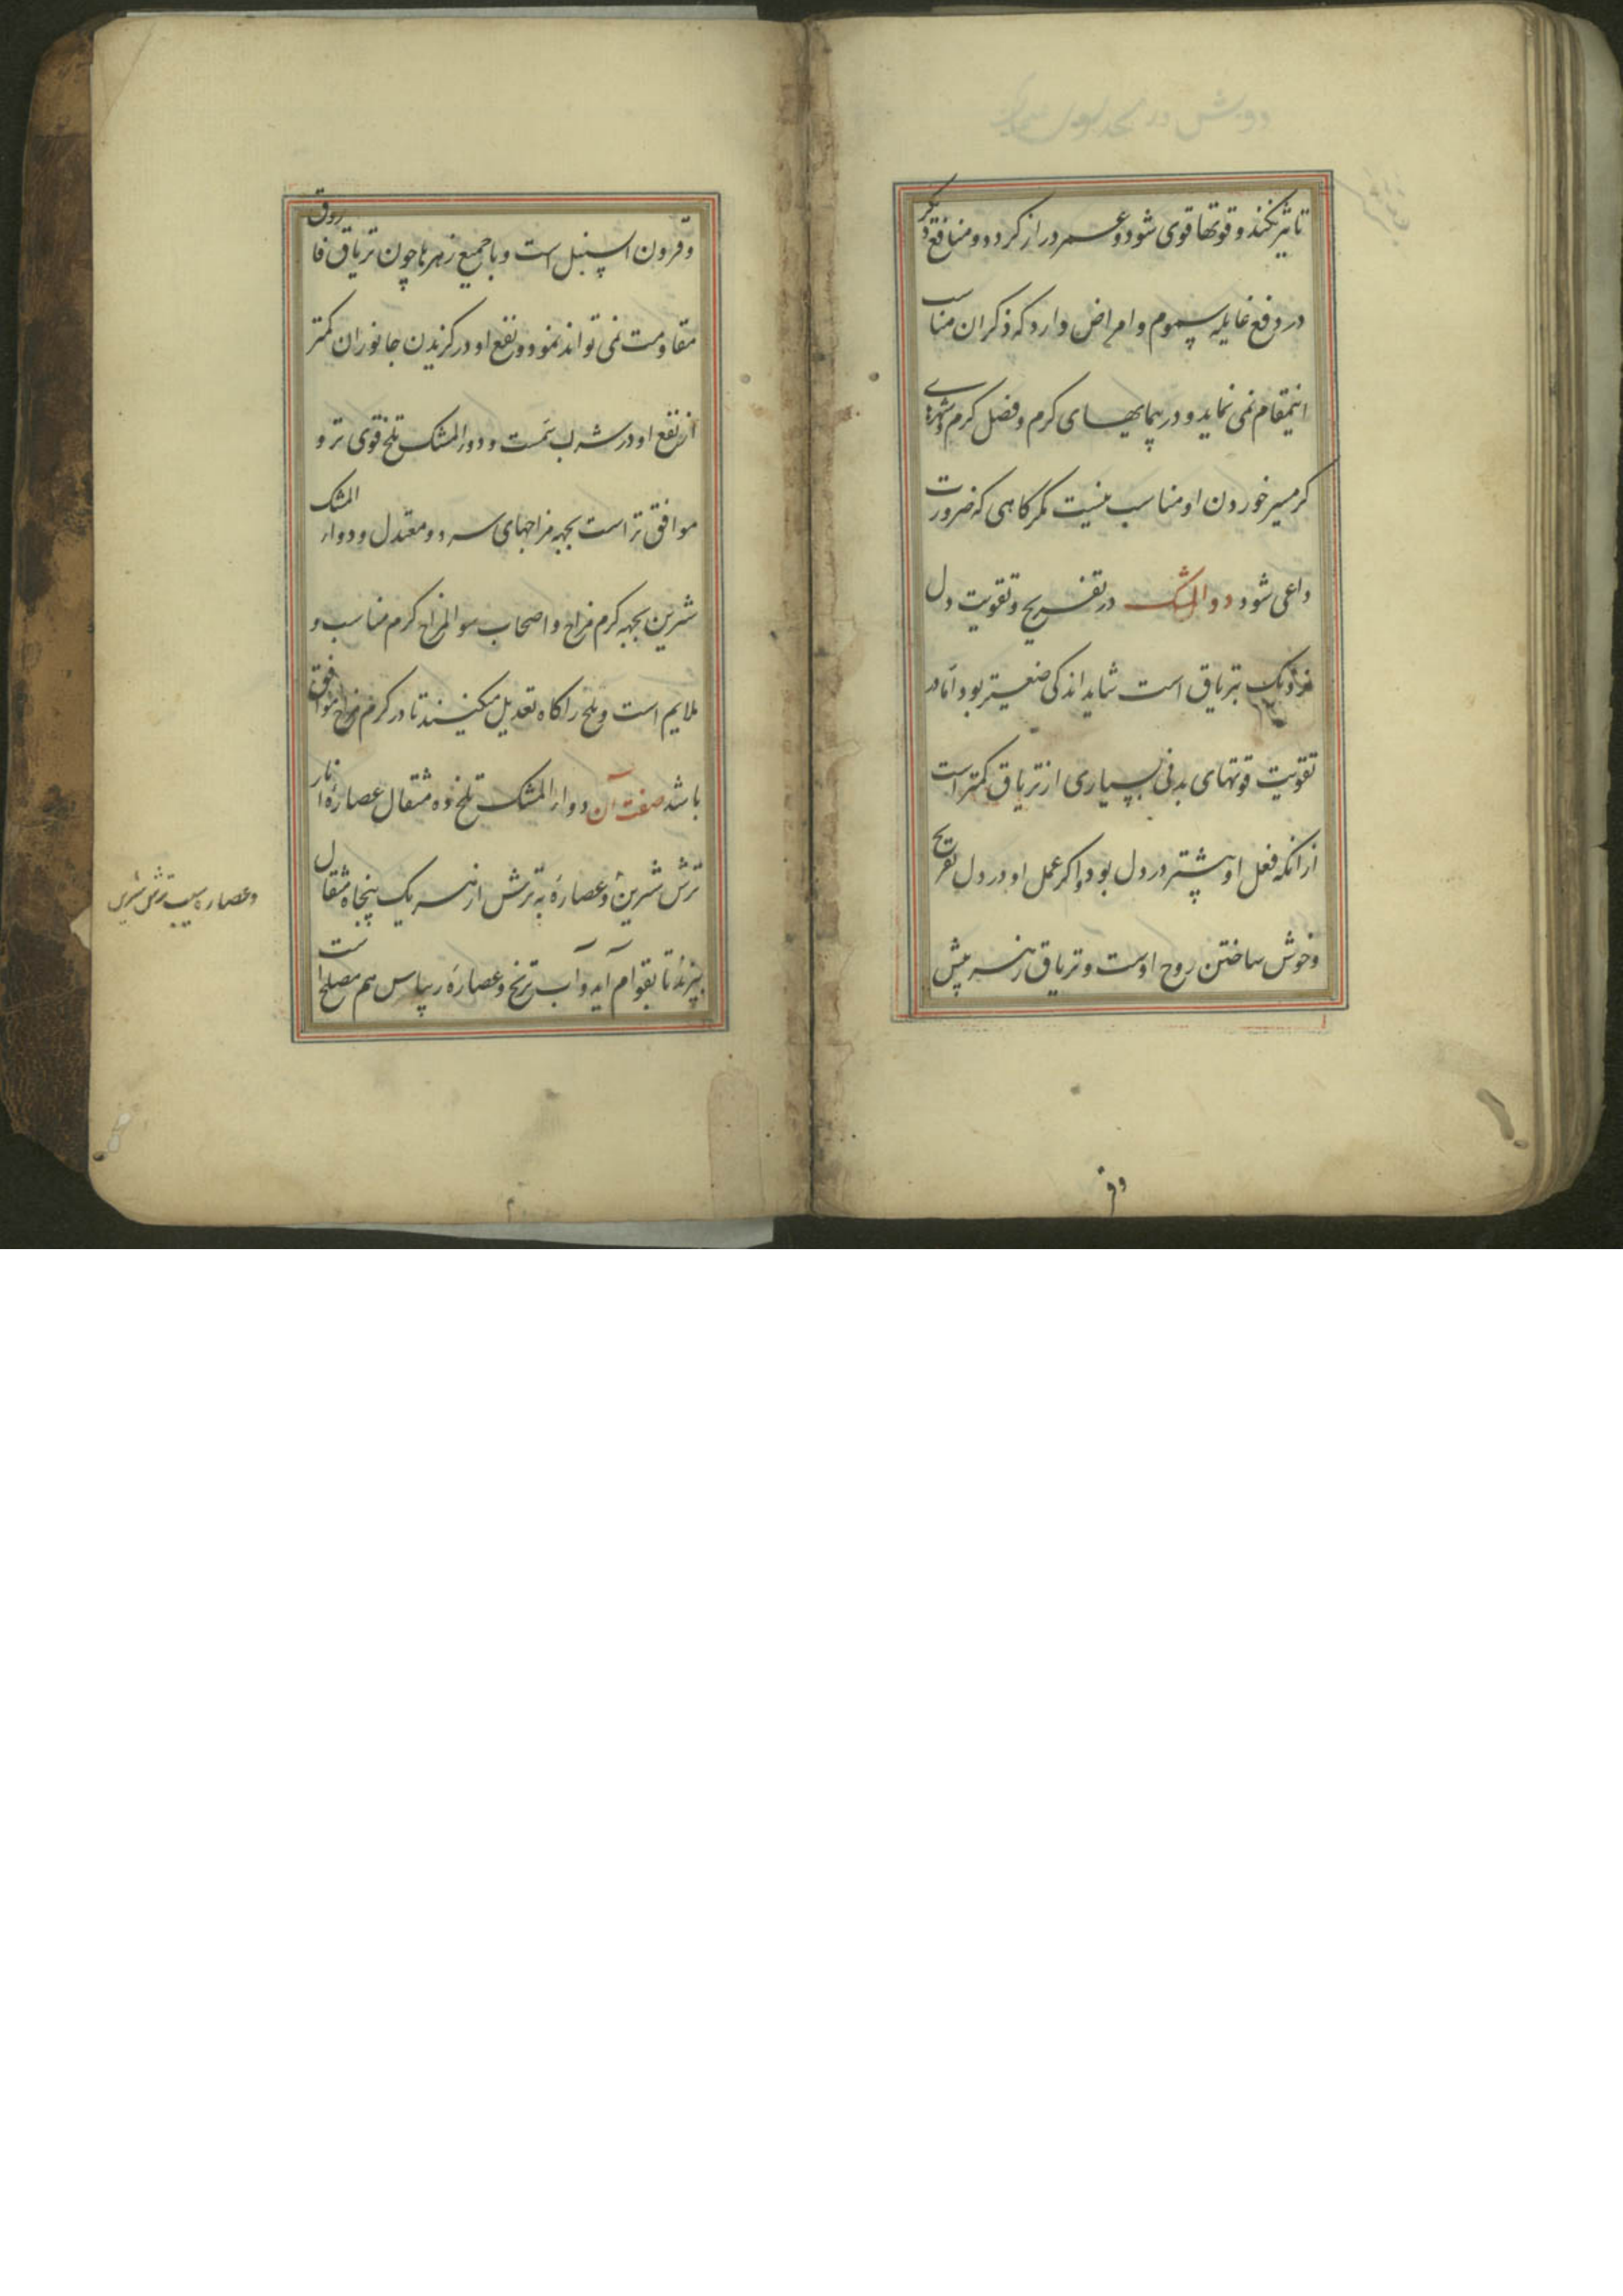 تاثیر نکند و قوتها قوی شود و عمر دراز کردد و منافع دیکر
در دفع غایله سموم و امراض دارد که ذکر ان مناسب
اینمقام نمی نماید و در هوایهای کرم و فصل کرم و شهرهای
کرمسیر خوردن او مناسب نیست مکر کاهی که ضرورت
داعی شود دوالمشک در تفریح و تقویت دل
نزدیک بتریاق است شاید اندکی ضعیفتر بود اما در
تقویت قوتهای بدنی بسیاری از تریاق کمتر است
از انکه فعل او بیشتر در دل بود و اکر عمل او در دل تفریح
و خوش ساختن روح اوست و تریاق زهر بیش
وقر
وقرون السنبل است و با جمیع زهرها چون تریاق فاروق
مقاومت نمی تواند نمود و نفع او در کزیدن جانوران کمتر
از نفع او در شرب سمست و دواء المشک تلخ قوی تر و
موافق تر است بجهه مزاجهای سرد و معتدل و دواء المشک
شرین بجهه کرم مزاج و اصحاب سوالمزاج کرم مناسب و
ملایم است و تلخ را کاه تعدیل میکنند تا در کرم مزاج موافق
باشد صفت آن دواء المشک تلخ ده مثقال عصاره انار
ترش شرین و عصاره به ترش از هر یک پنجاه مثقال
بپزند تا بقوام آید و آب ترنج و عصاره ریباس هم مصلح است
وعصاره سیب ترش شرین